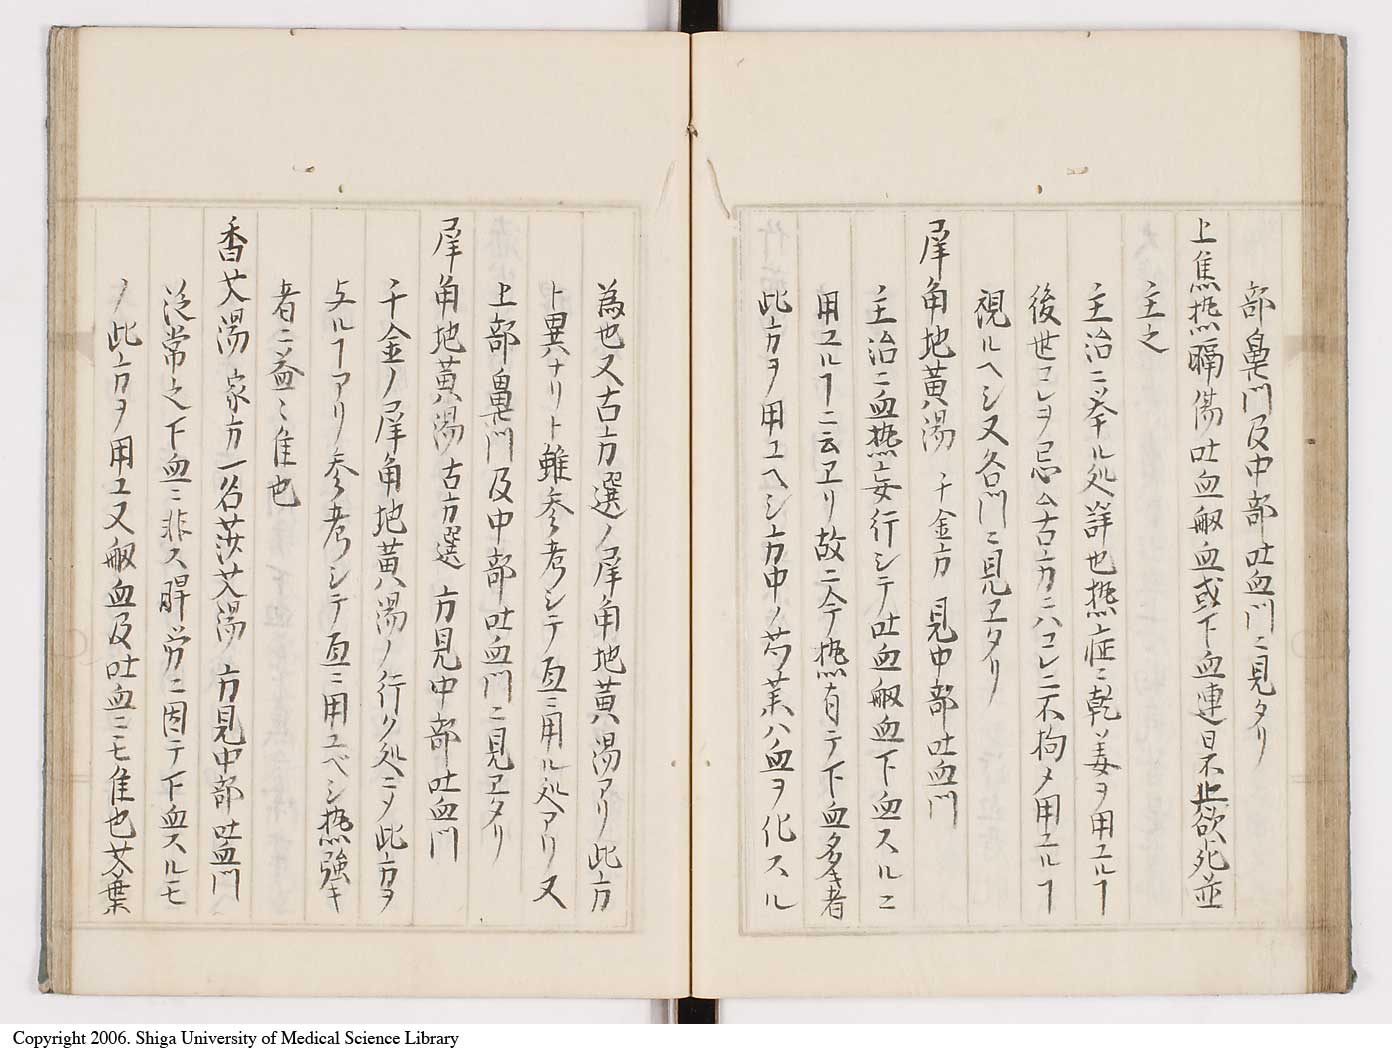 部鼻門及中部吐血門ニ見タリ
上焦熱膈傷吐血衄血或下血連日不止欲死並
主之
主治ニ挙ル処詳也熱症ニ乾姜ヲ用ユルヿ
後世コレヲ忌ム古方ニハコレニ不拘メ用ユルヿ
視ルヘシ又各門ニ見ヱタリ
犀角地黄湯 千金方 見中部吐血門
主治ニ血熱妄行シテ吐血衄血下血スルニ
用ユルヿニ云ヱリ故ニ今熱有テ下血多キ者
此方ヲ用ユヘシ方中ノ芍薬ハ血ヲ化スル
為也又古方選ノ犀角地黄湯アリ此方
ト異ナリト雖参考シテ直ニ用ル処アリ又
上部鼻門及中部吐血門ニ見ヱタリ
犀角地黄湯 古方選 方見中部吐血門
千金ノ犀角地黄湯ノ行ク処ニメ此方ヲ
与ルヿアリ参考シテ直ニ用ユベシ熱強キ
者ニ益〻佳也
香艾湯 家方 一名莎艾湯 方見中部吐血門
泛常之下血ニ非ス脾労ニ因テ下血スルモ
ノ此方ヲ用ユ又衄血及吐血ニモ佳也艾葉
Copyright 2006. Shiga University of Medical Science Library